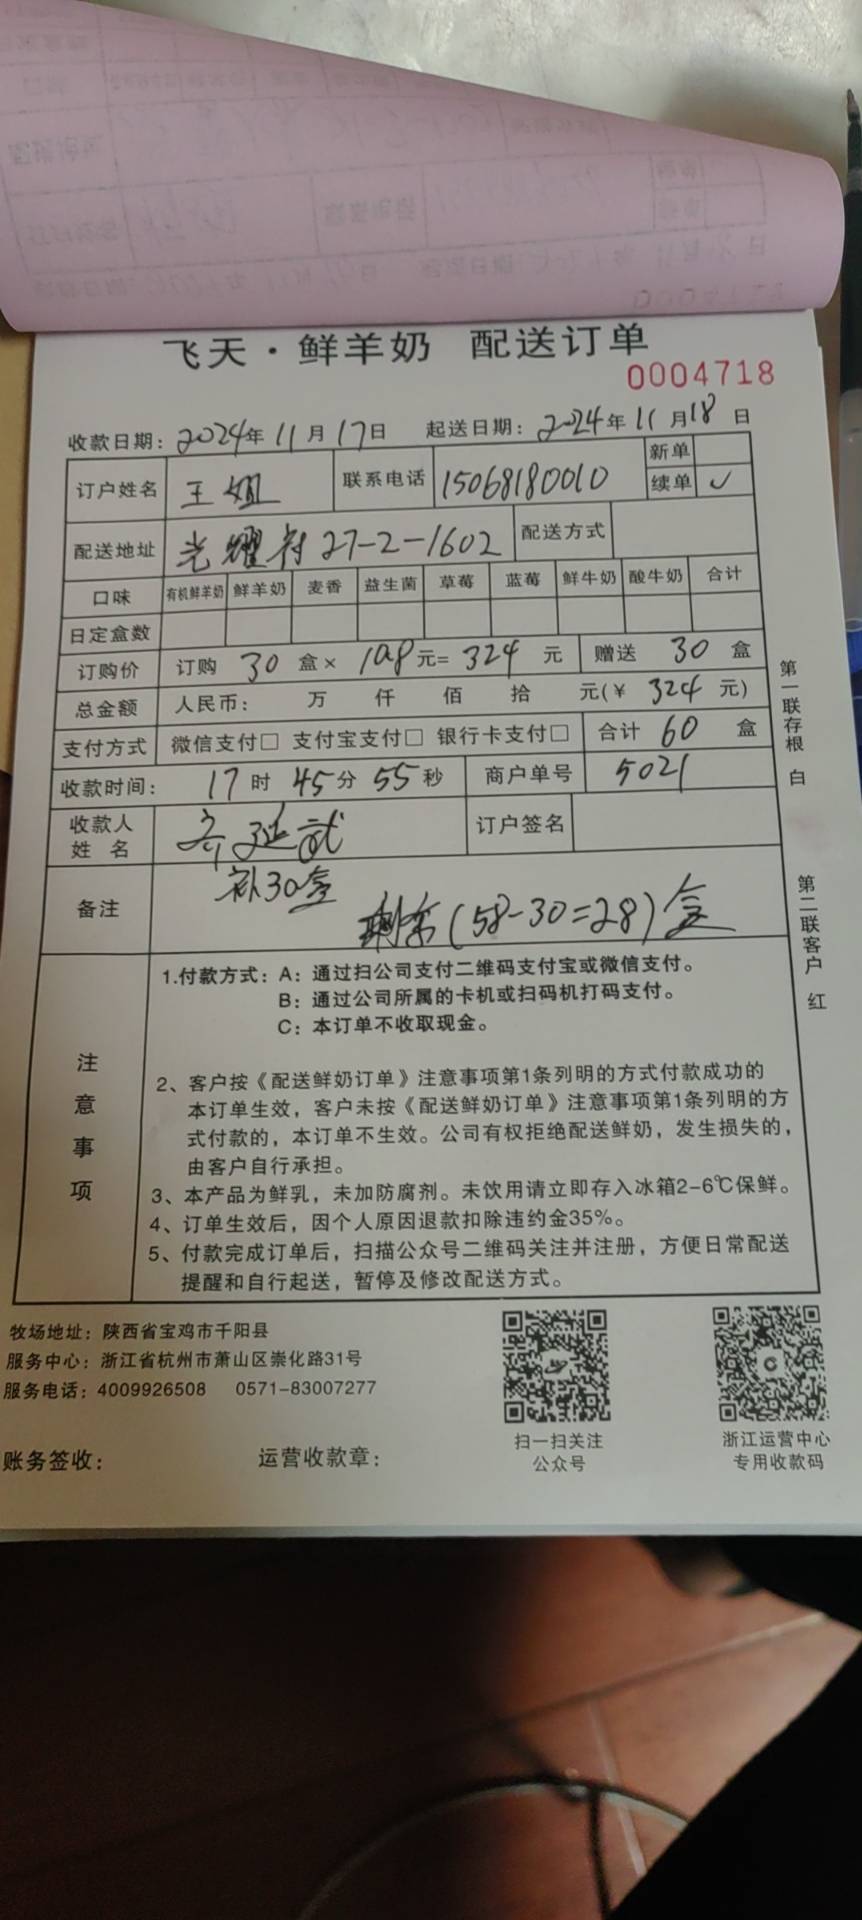 飞天·鲜羊奶 配送订单
0004718
收款日期：2024年11月17日 起送日期：2024年11月18日
订户姓名 王姐 联系电话 15068180010 新单
续单 ✓
配送地址 光耀府27-2-1602 配送方式
口味 有机鲜羊奶 鲜羊奶 麦香 益生菌 草莓 蓝莓 鲜牛奶 酸牛奶 合计
日定盒数
订购价 订购 30 盒× 10.8元=324 元 赠送 30 盒
总金额 人民币： 万 仟 佰 拾 元(¥ 324 元)
支付方式 微信支付□ 支付宝支付□ 银行卡支付□ 合计 60 盒
收款时间： 17时 45分 55秒 商户单号 5021
收款人
姓 名 延武 订户签名
备注 补30盒
剩余(58-30=28)盒
注意事项
1.付款方式：A：通过扫公司支付二维码支付宝或微信支付。
B：通过公司所属的卡机或扫码机打码支付。
C：本订单不收取现金。
2、客户按《配送鲜奶订单》注意事项第1条列明的方式付款成功的
本订单生效，客户未按《配送鲜奶订单》注意事项第1条列明的方
式付款的，本订单不生效。公司有权拒绝配送鲜奶，发生损失的，
由客户自行承担。
3、本产品为鲜乳，未加防腐剂。未饮用请立即存入冰箱2-6℃保鲜。
4、订单生效后，因个人原因退款扣除违约金35%。
5、付款完成订单后，扫描公众号二维码关注并注册，方便日常配送
提醒和自行起送，暂停及修改配送方式。
第一联存根 白
第二联客户 红
牧场地址：陕西省宝鸡市千阳县
服务中心：浙江省杭州市萧山区崇化路31号
服务电话：4009926508 0571-83007277
扫一扫关注
公众号
浙江运营中心
专用收款码
账务签收： 运营收款章：